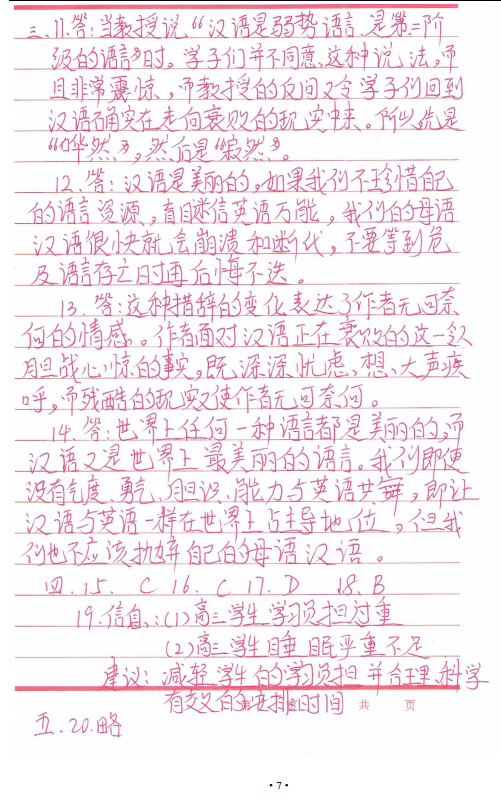 三、11.答：当教授说“汉语是弱势语言，是第二阶
级的语言”时，学子们并不同意这种说法，而
且非常震惊，而教授的反问又令学子们回到
汉语确实在走向衰败的现实中来。所以先是
“哗然”，然后是“寂然”。
12.答：汉语是美丽的，如果我们不珍惜自己
的语言资源，盲目迷信英语万能，我们的母语
汉语很快就会崩溃和断代，不要等到危
及语言存亡时再后悔不迭。
13.答：这种措辞的变化表达了作者无可奈
何的情感。作者面对汉语正在衰败的这一令人
胆战心惊的事实，既深深忧虑、想大声疾
呼，而残酷的现实又使作者无可奈何。
14.答：世界上任何一种语言都是美丽的，而
汉语又是世界上最美丽的语言。我们即使
没有气度、勇气、胆识、能力与英语共舞，即让
汉语与英语一样在世界上占主导地位，但我
们也不应该抛弃自己的母语汉语。
四.15. C 16. C 17. D 18. B
19.信息：(1)高三学生学习负担过重
(2)高三学生睡眠严重不足
建议：减轻学生的学习负担并合理、科学
有效的安排时间 共 页
五.20.略
·7·